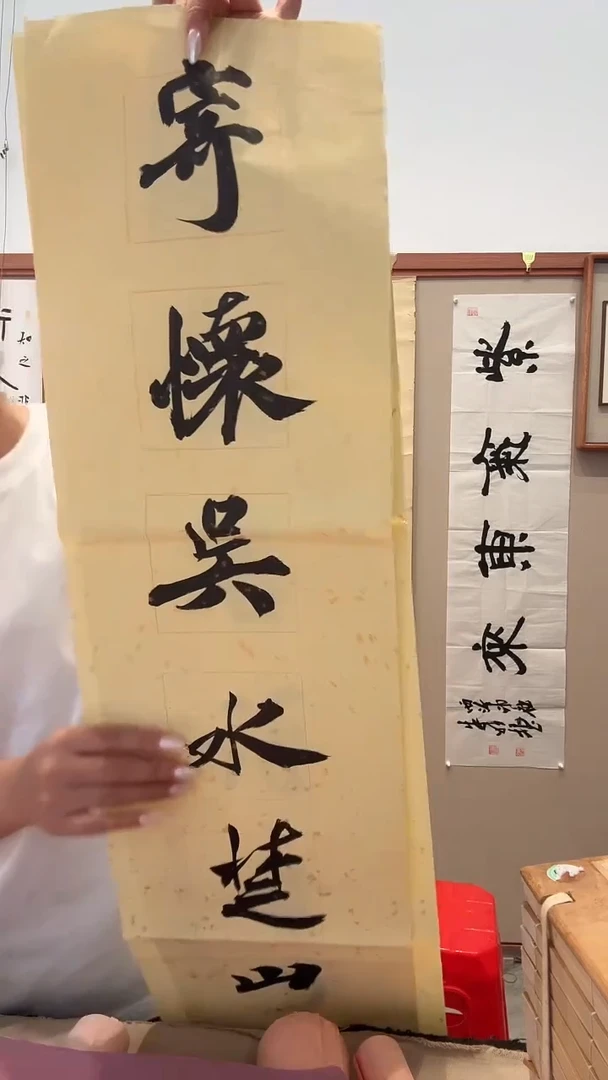 寄懷吳水楚山
紫氣東來
知之